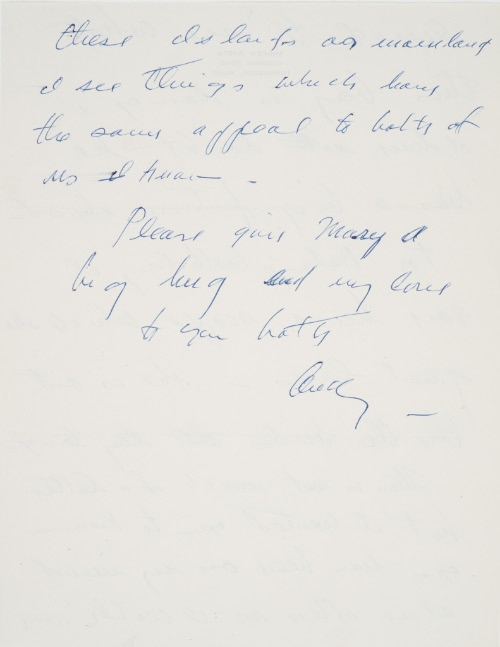 these islands or mainland
I see things which have
the same appeal to both of
us I know -
Please give Mary a
big hug and my love
to you both